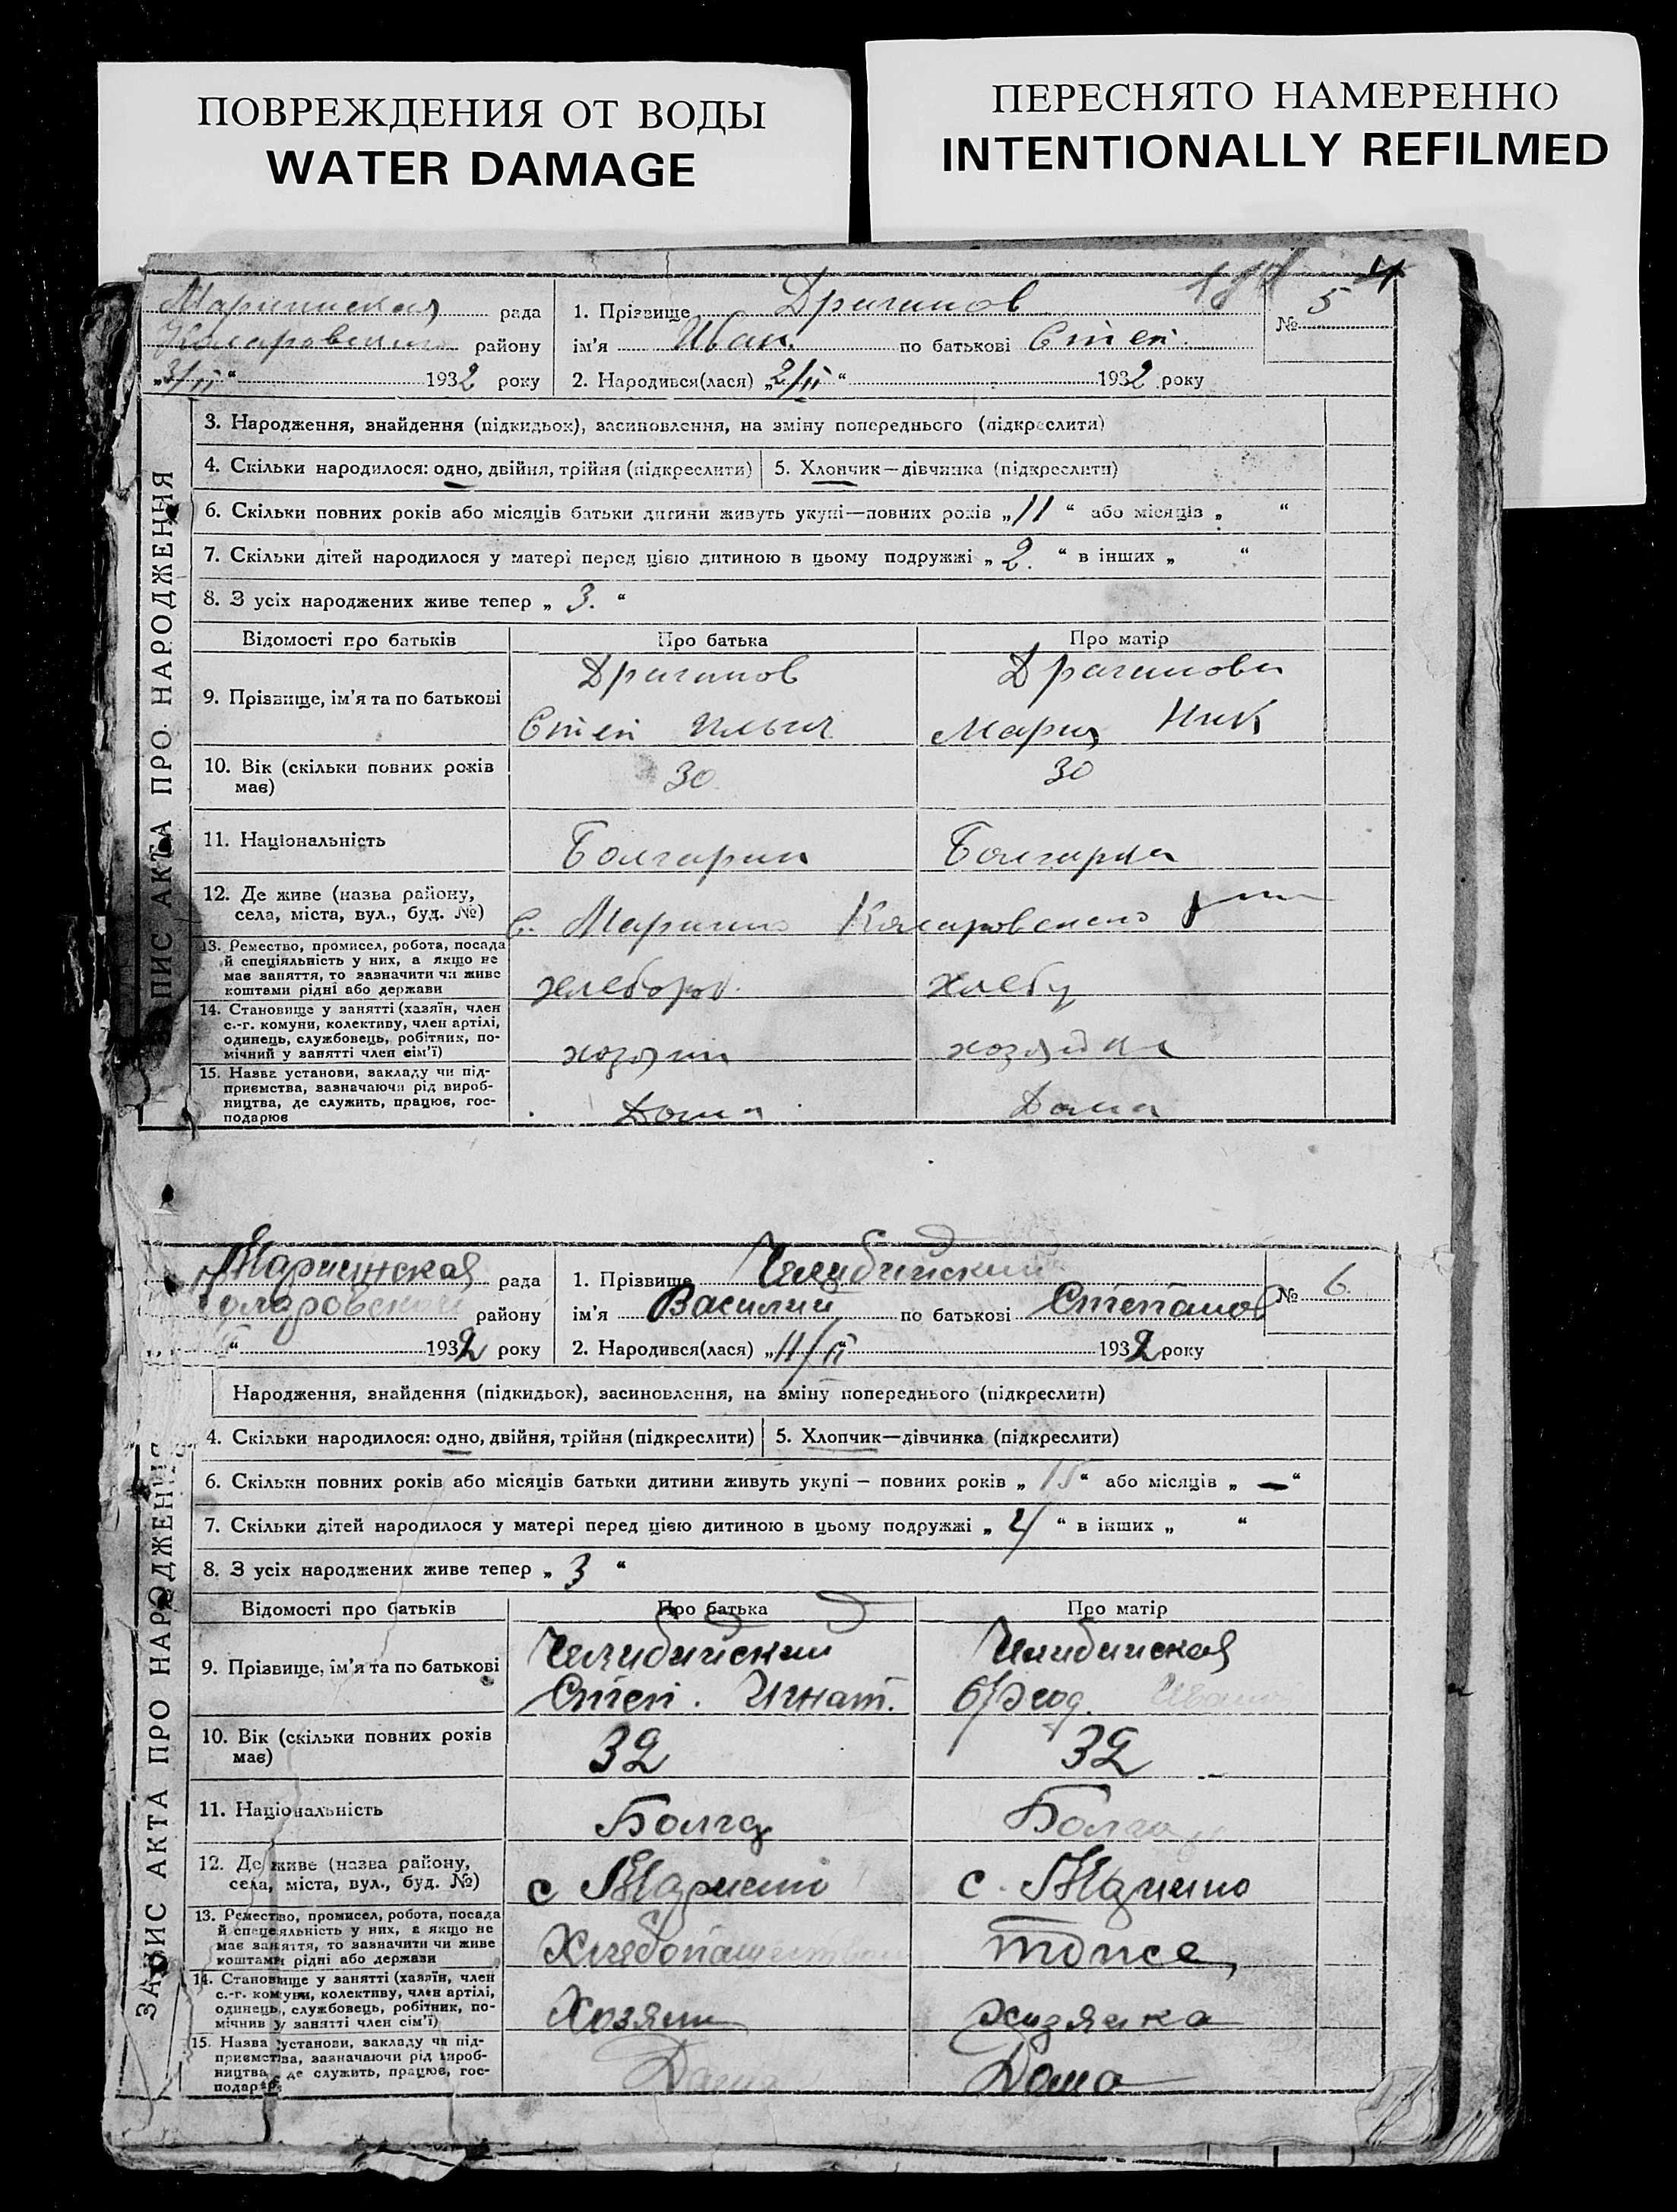 ПОВРЕЖДЕНИЯ ОТ ВОДЫ
WATER DAMAGE
ПЕРЕСНЯТО НАМЕРЕННО
INTENTIONALLY REFILMED
4
Мариинская рада
Коларовского району
„3/II“ 1932 року
1. Прізвище Драгинов
ім'я Иван. по батькові Степ.
2. Народився(лася) „2/II“ 1932 року
№ 5
ЗАПИС АКТА ПРО НАРОДЖЕННЯ
3. Народження, знайдення (підкидьок), засиновлення, на зміну попереднього (підкреслити)
4. Скільки народилося: одно, двійня, трійня (підкреслити) 5. Хлопчик—дівчинка (підкреслити)
6. Скільки повних років або місяців батьки дитини живуть укупі—повних років „11“ або місяців „ “
7. Скільки дітей народилося у матері перед цією дитиною в цьому подружжі „2.“ в інших „ “
8. З усіх народжених живе тепер „3.“
Відомості про батьків Про батька Про матір
9. Прізвище, ім'я та по батькові
Драгинов Драгинова
Степ Ильич Мария Ник
10. Вік (скільки повних років
має)
30 30
11. Національність Болгарин Болгарка
12. Де живе (назва району,
села, міста, вул., буд. №)
с. Марино Коларовского
13. Ремество, промисел, робота, посада
й спеціяльність у них, а якщо не
має заняття, то зазначити чи живе
коштами рідні або держави
хлебороб. хлебо
14. Становище у занятті (хазяїн, член
с.-г. комуни, колективу, член артілі,
одинець, службовець, робітник, по-
мічний у занятті член сім'ї)
хозяин хозяйка
15. Назва установи, закладу чи під-
приємства, зазначаючи рід вироб-
ництва, де служить, працює, гос-
подарює
Дома Дома
Мариинская рада
Коларовской району
“ 1932 року
1. Прізвище Челибийский
ім'я Василий по батькові Степанов
2. Народився(лася) „11/II“ 1932 року
№ 6.
ЗАПИС АКТА ПРО НАРОДЖЕННЯ
Народження, знайдення (підкидьок), засиновлення, на зміну попереднього (підкреслити)
4. Скільки народилося: одно, двійня, трійня (підкреслити) 5. Хлопчик—дівчинка (підкреслити)
6. Скільки повних років або місяців батьки дитини живуть укупі — повних років „15“ або місяців „—“
7. Скільки дітей народилося у матері перед цією дитиною в цьому подружжі „4“ в інших „ “
8. З усіх народжених живе тепер „3“
Відомості про батьків Про батька Про матір
9. Прізвище, ім'я та по батькові
Челибийский Челибийская
Степ. Игнат. Иван
10. Вік (скільки повних років
має)
32 32
11. Національність Болга Болга
12. Де живе (назва району,
села, міста, вул., буд. №)
с Марино с. Марино
13. Ремество, промисел, робота, посада
й спецеяльність у них, а якщо не
має заняття, то зазначити чи живе
коштами рідні або держави
Хлебопашество тоже
14. Становище у занятті (хазяїн, член
с.-г. комуни, колективу, член артілі,
одинець, службовець, робітник, по-
мічнив у занятті член сім'ї)
Хозяин Хозяйка
15. Назва установи, закладу чи під-
приємства, зазначаючи рід вироб-
ництва, де служить, працює, гос-
подарює
Дома Дома